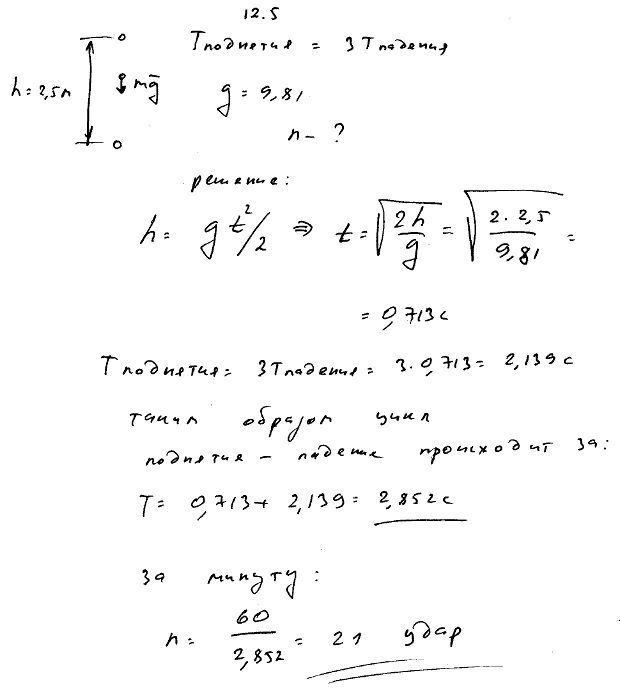 12.5
Tподнятия = 3 Tпадения
h = 2,5м
mg̅
g = 9,81
n - ?
решение:
h = gt²/2 ⇒ t = √(2h/g) = √(2·2,5/9,81) =
= 0,713с
Tподнятия = 3Tпадения = 3·0,713 = 2,139с
таким образом цикл
поднятия – падение происходит за:
T = 0,713 + 2,139 = 2,852с
за минуту:
n = 60/2,852 = 21 удар